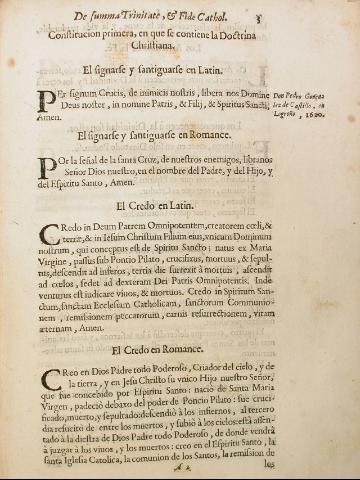 De summa Trinitate, & Fide Cathol. 3
Constitucion primera, en que se contiene la Doctrina
Christiana.
El signarse y santiguarse en Latin.
PEr signum Crucis, de inimicis nostris, libera nos Domine
Deus noster, in nomine Patris, & Filij, & Spiritus Sancti,
Amen.
Don Pedro Gonça
lez de Castillo, en
Logroño, 1620.
El signarse y santiguarse en Romance.
POr la señal de la santa Cruz, de nuestros enemigos, libranos
Señor Dios nuestro, en el nombre del Padre, y del Hijo, y
del Espiritu Santo, Amen.
El Credo en Latin.
CRedo in Deum Patrem Omnipotentem, creatorem cœli, &
terræ, & in Iesum Christum Filium eius, vnicum Dominum
nostrum, qui conceptus est de Spiritu Sancto: natus ex Maria
Virgine, passus sub Pontio Pilato, crucifixus, mortuus, & sepul-
tus, descendit ad inferos, tertia die surrexit à mortuis, ascendit
ad cœlos, sedet ad dexteram Dei Patris Omnipotentis. Inde
venturus est iudicare viuos, & mortuos. Credo in Spiritum San-
ctum, sanctam Ecclesiam Catholicam, sanctorum Communio-
nem, remissionem peccatorum, carnis resurrectionem, vitam
æternam, Amen.
El Credo en Romance.
CReo en Dios Padre todo Poderoso, Criador del cielo, y de
la tierra, y en Jesu Christo su vnico Hijo nuestro Señor,
que fue concebido por Espiritu Santo: naciò de Santa Maria
Virgen, padeciò debaxo del poder de Poncio Pilato: fue cruci-
ficado, muerto, y sepultado: descendiò à los infiernos, al tercero
dia resucitò de entre los muertos, y subiò à los cielos: està assen-
tado à la diestra de Dios Padre todo Poderoso, de donde vendrà
à juzgar à los viuos, y los muertos: creo en el Espiritu Santo, la
santa Iglesia Catolica, la comunion de los Santos, la remission de
A 2 los